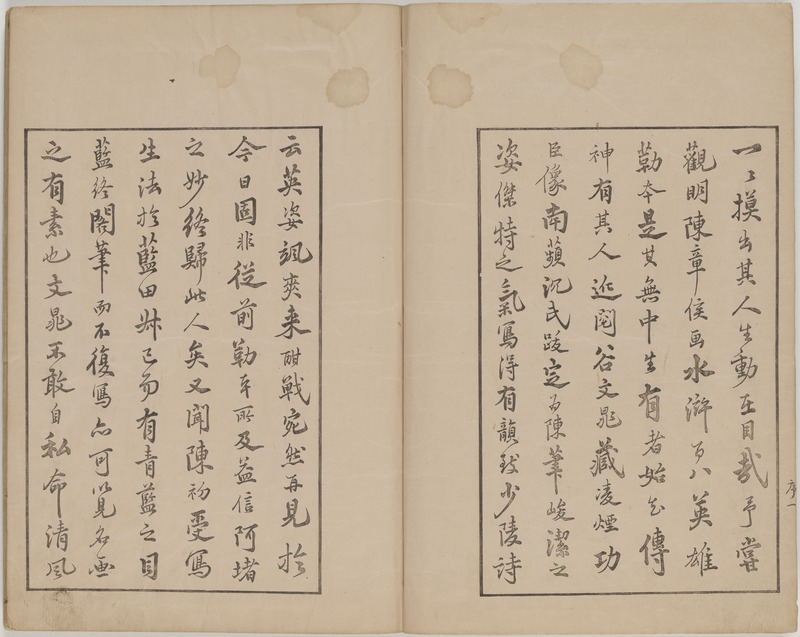 一〻摸出其人生動在目哉予嘗
觀明陳章侯画水滸百八英雄
勒本是其無中生有者始知傳
神有其人近閱谷文晁藏凌煙功
臣像南蘋沉氏跋定為陳筆峻潔之
姿傑特之氣寫得有韻致少陵詩
序一
云英姿颯爽来酣戰宛然再見於
今日固非從前勒本所及益信阿堵
之妙終歸此人矣又聞陳初受寫
生法於藍田叔已而有青藍之目
藍終閣筆而不復寫亦可以見名画
之有素也文晁不敢自私命清風